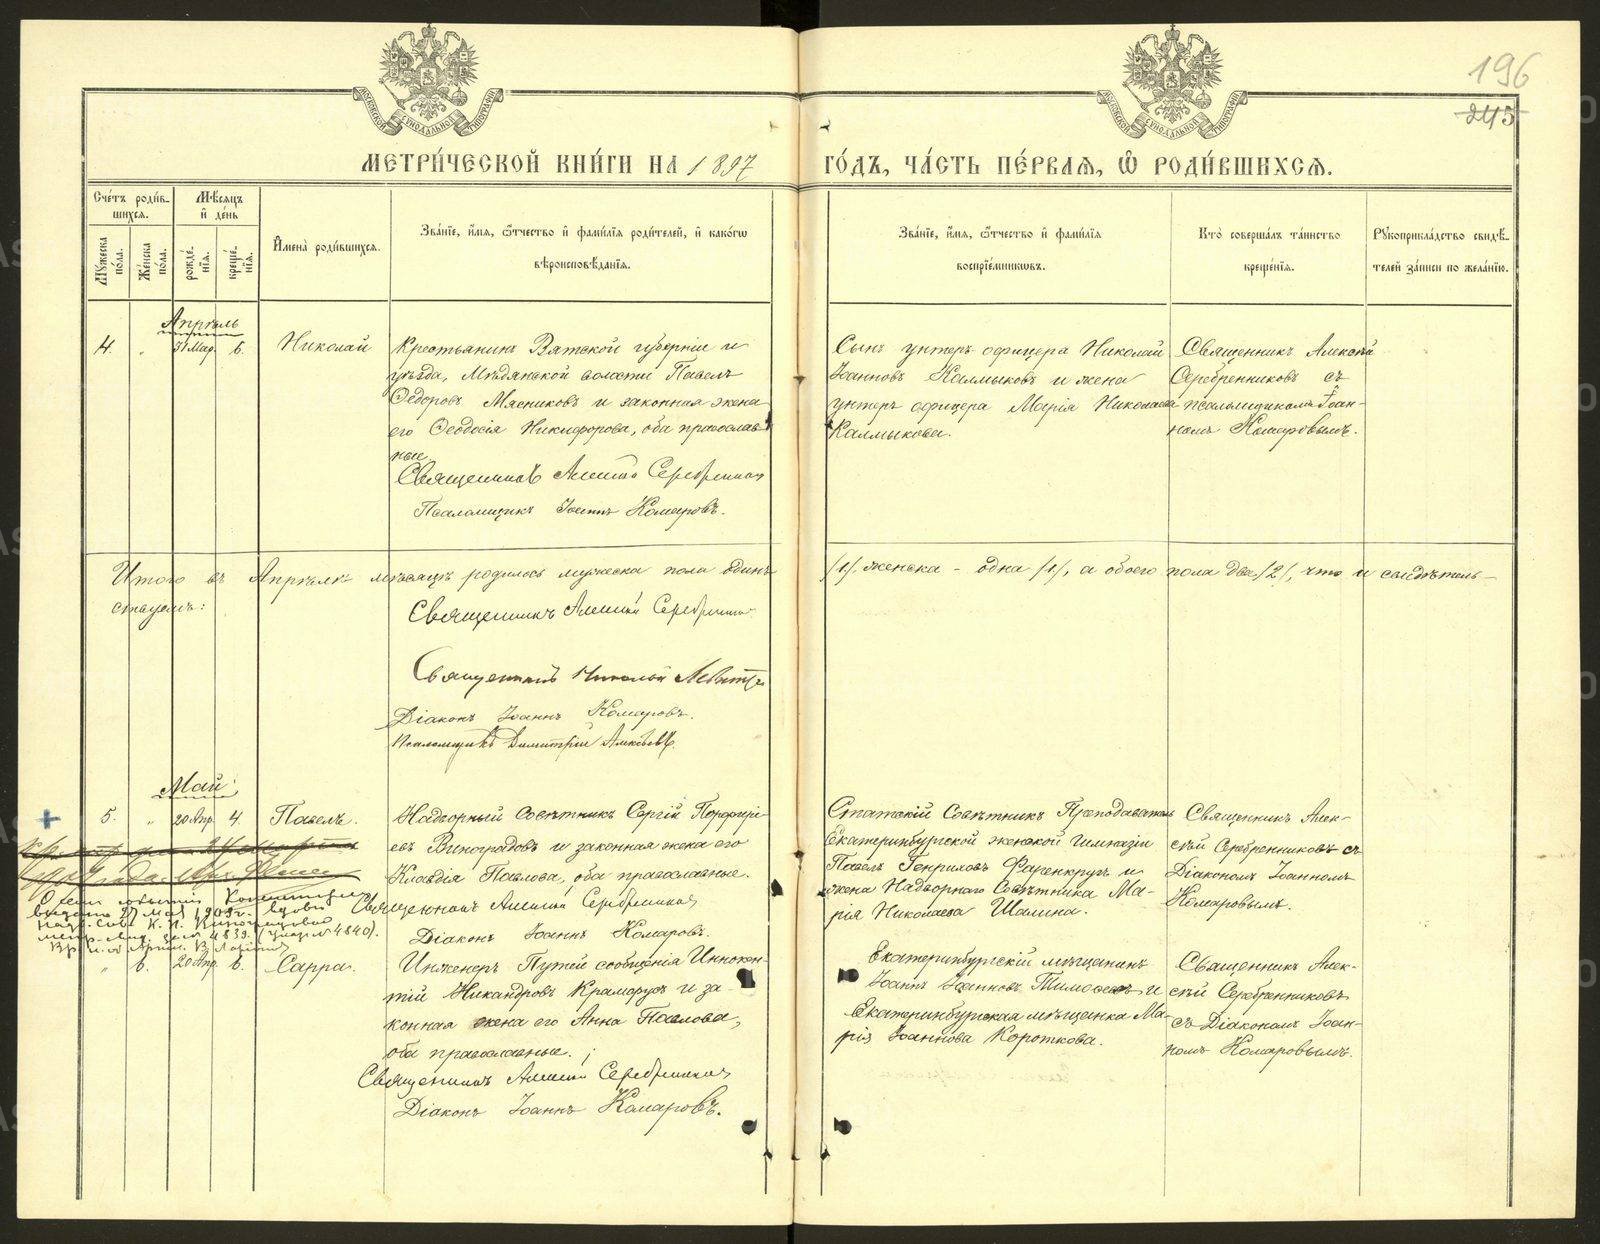 196
245
МЕТРИ́ЧЕСКОЙ КНИ́ГИ НА 1897 ГО́ДЪ, ЧА́СТЬ ПЕ́РВАЯ, Ѽ РОДИ́ВШИХСѦ.
Сче́тъ роди́в-
шихся.
Мѣ́сяцъ
и҆ де́нь
Мꙋ́жеска
по́ла.
Же́нска
по́ла.
рожде́-
нїя.
креще́-
нїя.
И҆мена̀ роди́вшихся.
Зва́нїе, и҆́мя, ѻ҆́тчество и҆ фами́лїя роди́телей, и҆ како́гѡ
вѣроисповѣ́данїя.
Зва́нїе, и҆́мя, ѻ҆́тчество и҆ фами́лїя
воспрїе́мниковъ.
Кто̀ соверша́лъ та́инство
креще́нїя.
Рꙋкоприкла́дство свидѣ́-
телей за́писи по жела́нїю.
Апрѣль
4. „ 31 Мар. 6. Николай
Крестьянинъ Вятской губерніи и
уѣзда, Мѣдянской волости Павелъ
Ѳедоровъ Мясниковъ и законная жена
его Ѳеодосія Никифорова, оба православ
ные.
Священникъ Алексій Серебренников
Псаломщикъ Іоаннъ Комаровъ.
Сынъ унтеръ офицера Николай
Іоанновъ Калмыковъ и жена
унтеръ офицера Марія Николаева
Калмыкова.
Священникъ Алексѣй
Серебренниковъ съ
псаломщикомъ Іоан-
номъ Комаровымъ.
Итого въ Апрѣлѣ мѣсяцѣ родилось мужеска пола одинъ /1/. женска - одна /1/, а обоего пола два /2/, что и свидѣтель-
ствуемъ:
Священникъ Алексій Серебренников
Священникъ Николай
Діаконъ Іоаннъ Комаровъ.
Псаломщикъ Димитрій
Май
5. „ 20 Апр. 4. Павелъ.
Надворный Совѣтникъ Сергій Порфирі-
евъ Виноградовъ и законная жена его
Клавдія Павлова, оба православные.
Священникъ Алексій Серебренников
Діаконъ Іоаннъ Комаровъ.
Статскій Совѣтникъ Преподаватель
Екатеринбургской женской гимназіи
Павелъ Генриховъ Фаренкругъ и
жена Надворнаго Совѣтника Ма-
рія Николаева Шалина.
Священникъ Алек-
сѣй Серебренниковъ съ
Діакономъ Іоанномъ
Комаровымъ.
27 Мая 1909 г. вдовы
4839. (4840).
„ 6. 20 Апр. 6. Сарра.
Инженеръ Путей сообщенія Иннокен-
тій Никандровъ и за-
конная жена его Анна Павлова,
оба православные.
Священникъ Алексій Серебренников
Діаконъ Іоаннъ Комаровъ.
Екатеринбургскій мѣщанинъ
Іоаннъ Іоанновъ и
Екатеринбургская мѣщанка Ма-
рія Іоаннова Короткова.
Священникъ Алек-
сѣй Серебренниковъ
съ Діакономъ Іоан-
номъ Комаровымъ.